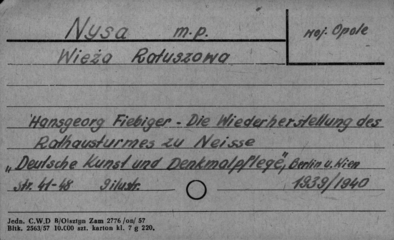 Nysa m.p.
woj. Opole
Wieża Ratuszowa
Hansgeorg Fiebiger - Die Wiederherstellung des
Rathausturmes zu Neisse
„Deutsche Kunst und Denkmalpflege", Berlin u. Wien
str. 41-48 9 ilustr. 1939/1940
Jedn. C.W.D 8/Olsztyn Zam 2776/oo/57
Bltk. 2563/57 10.000 szt. karton kl. 7 g 220.